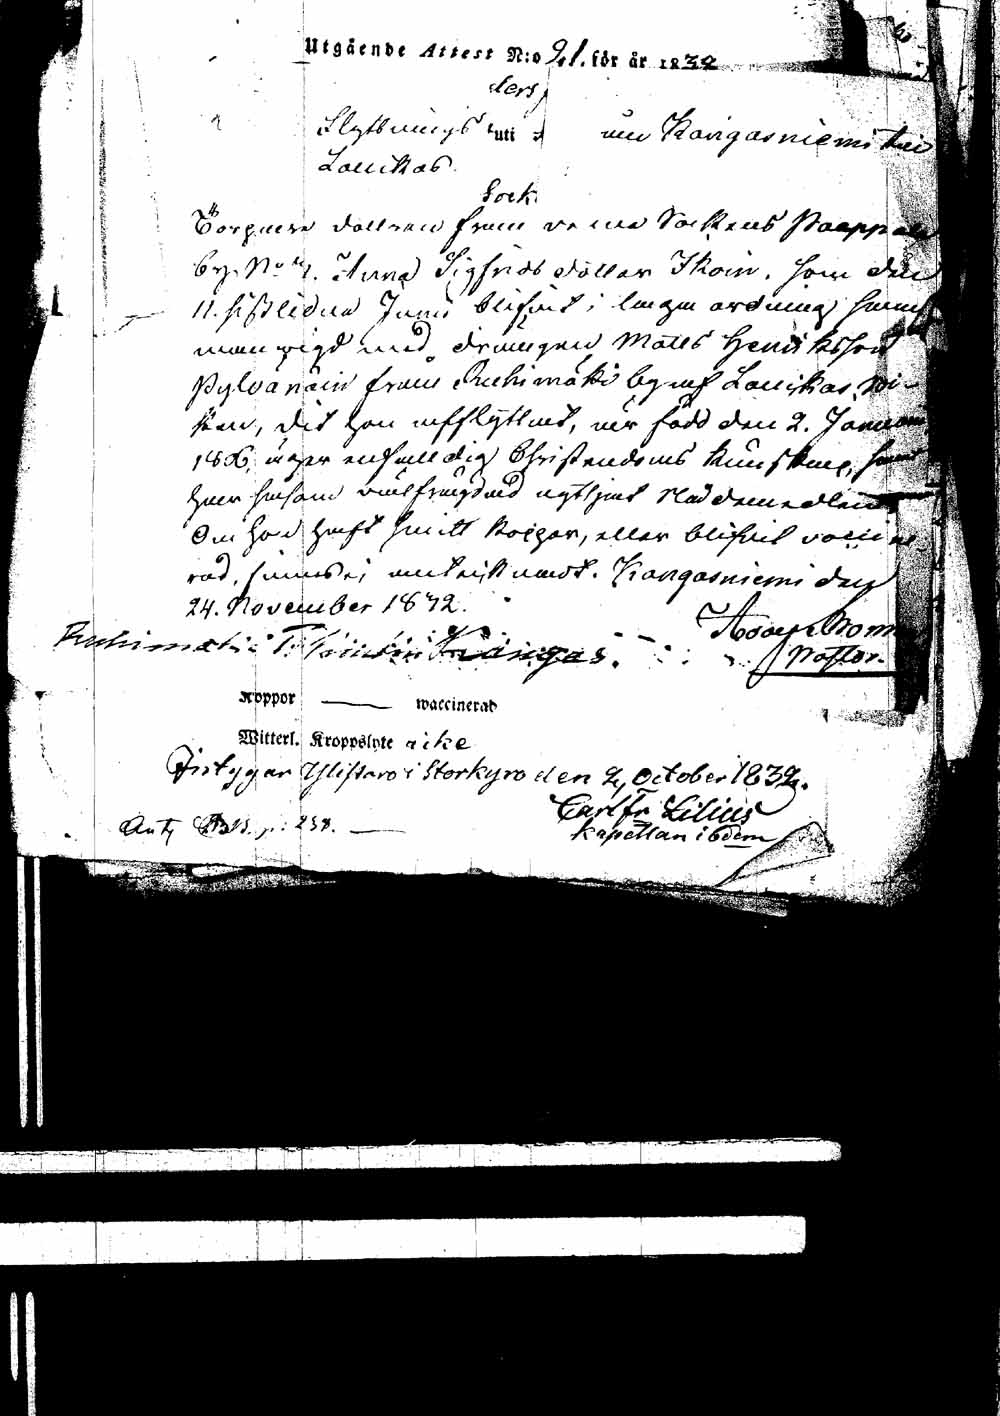 Utgående Attest N:o 91. för år 1832
ders
Flyttnings tuti från Kangasniemi till
Laukas.
Sock
Torpare dottren från denna Sockens Paappala
by. No 4. Anna Sigfrids dotter Ikoin, som den
11. sistlidne Junii blifvit i laga ordning samm
man vigd med drängen Matts Henriksson
Pylvänäin från Ruhimäki by af Laukas
ken, dit hon afflyttat, är född den 2. Januarii
1806, äger enfaldig Christendoms kunskap, samt
har såsom välfrägdad nyttjat Nådemedlen
Om hon haft Koppor, eller blifvit vaccine
rad, finnes ej antecknadt. Kangasniemi den
24. November 1832.
Pastor.
Ruhimäki Kangas.
Koppor waccinerad
Witterl. Kroppslyte icke
Betygar Ylistaro i Storkyro den 2 October 1832.
Carl Fr Lilius
Kapellan ibdem
Ant p: 238.